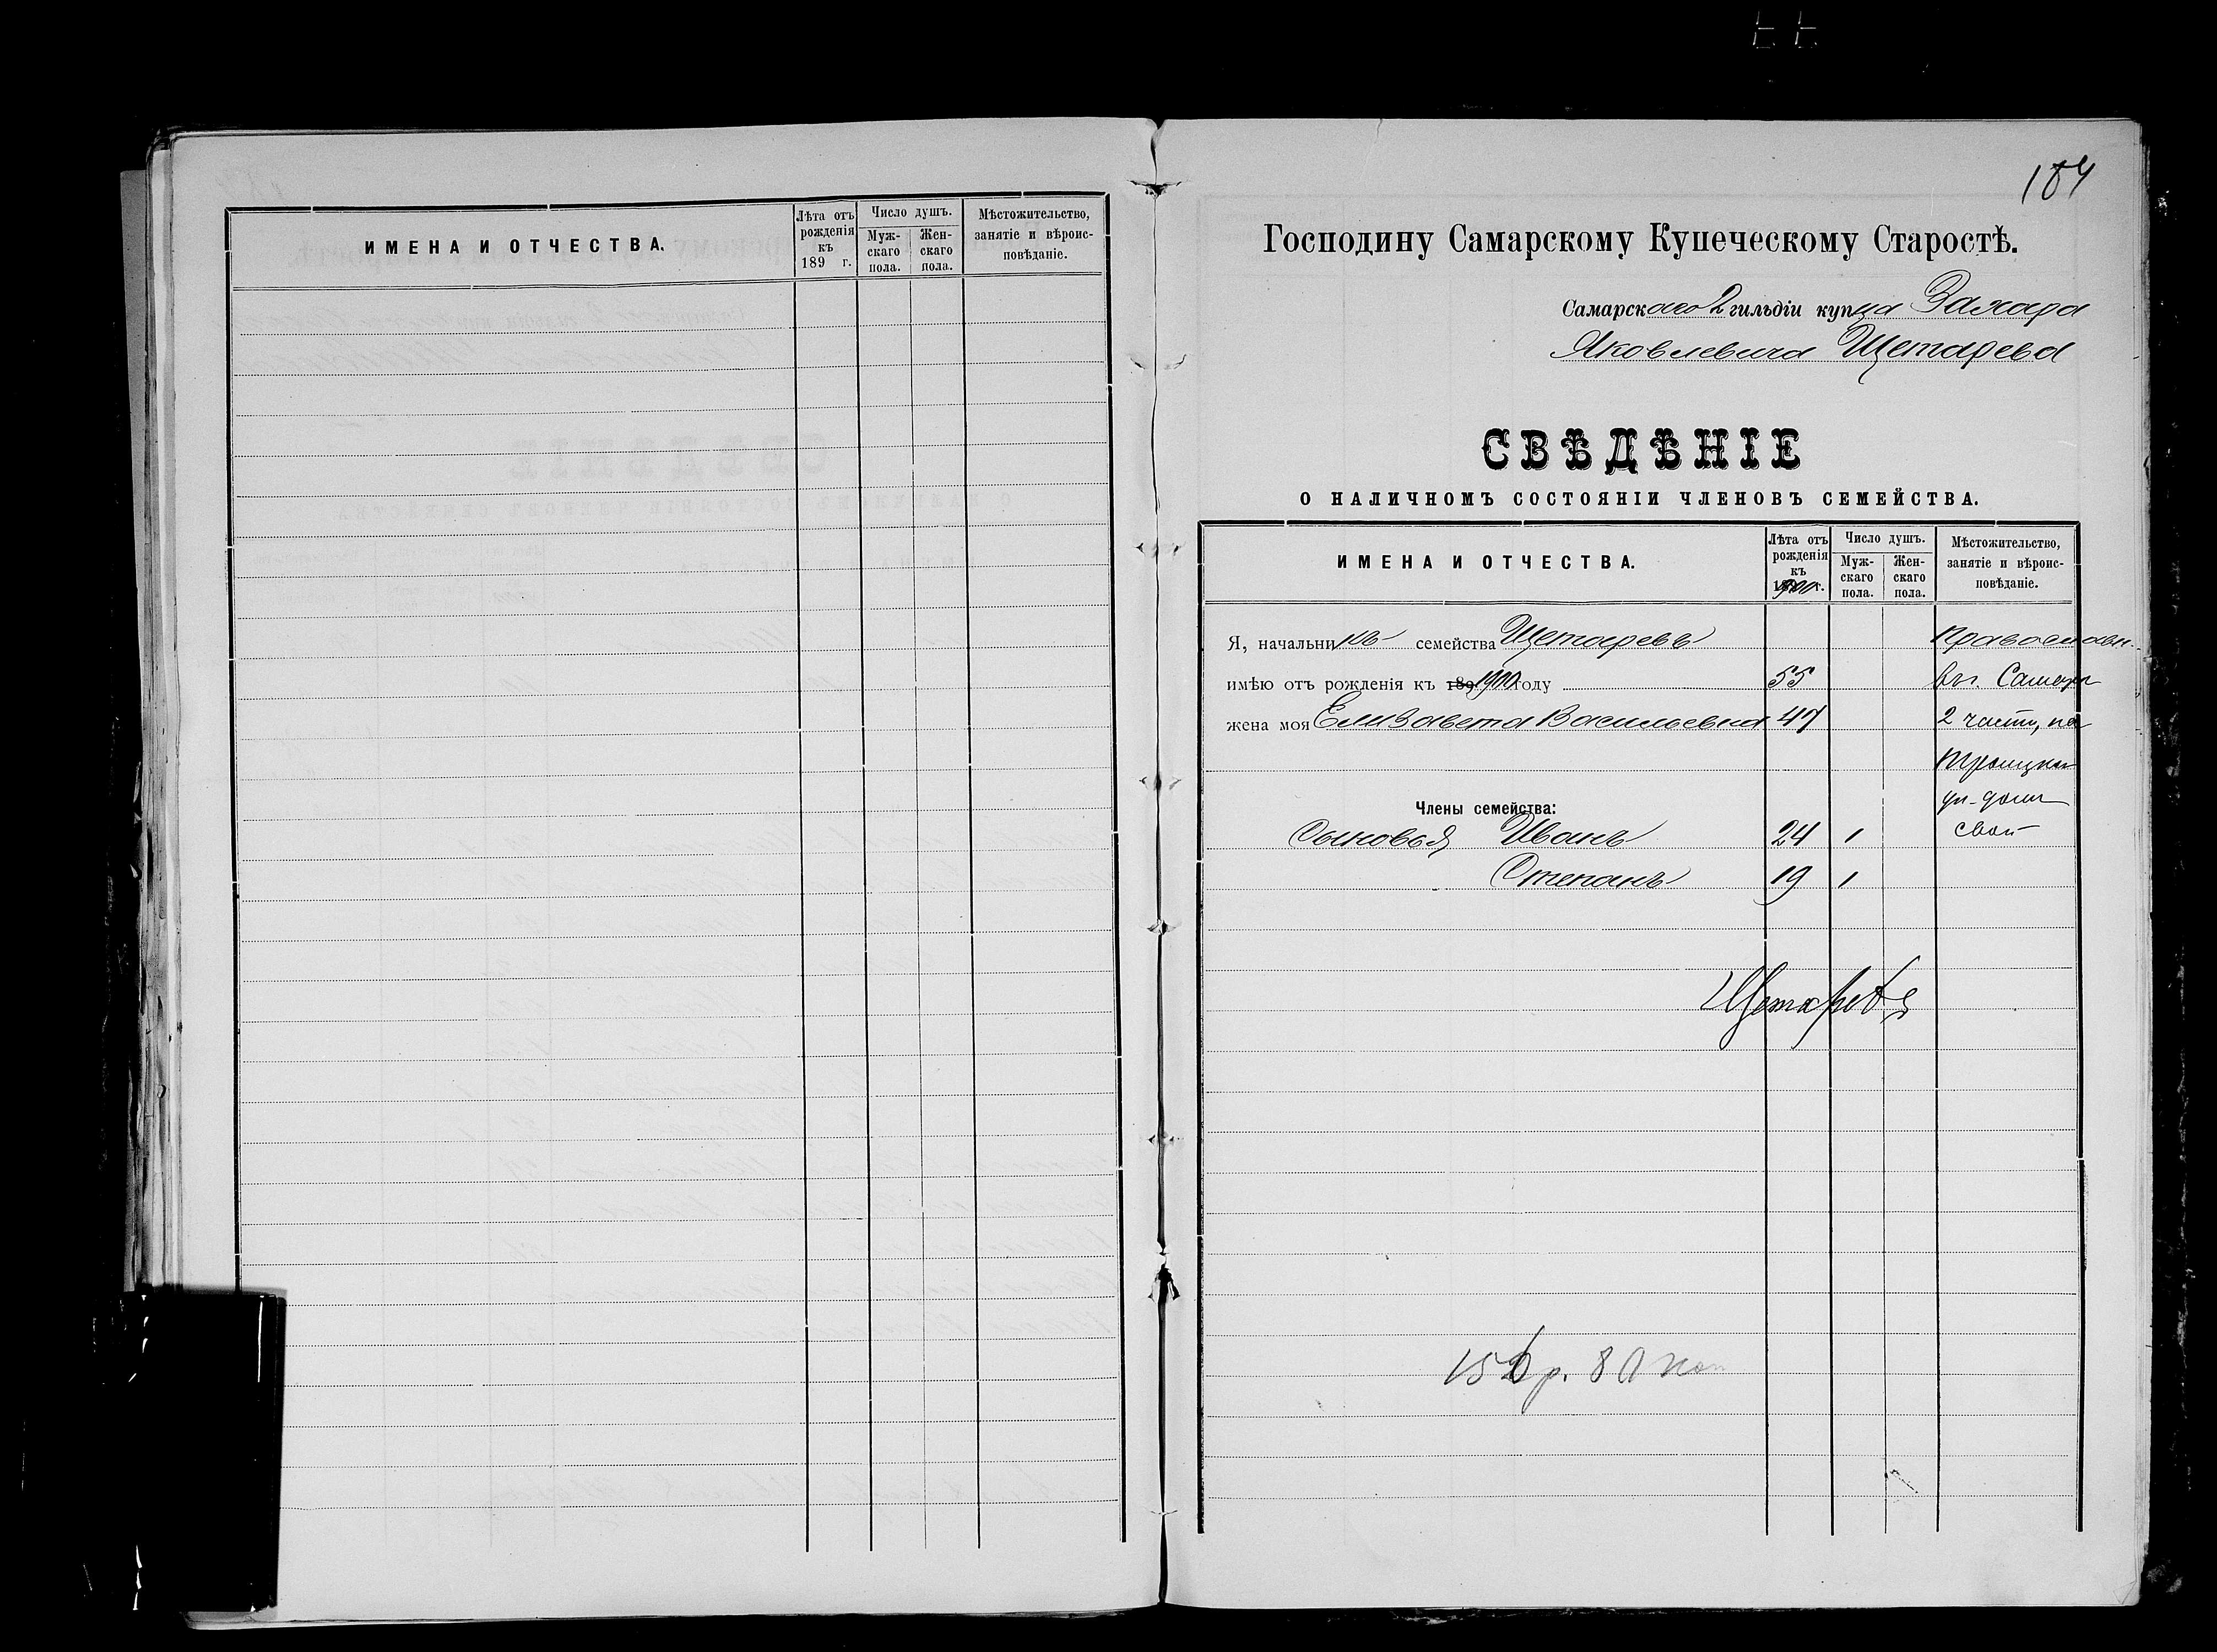 ИМЕНА И ОТЧЕСТВА.
Лѣта отъ рожденія къ 189 г.
Число душъ.
Мужскаго пола.
Женскаго пола.
Мѣстожительство, занятіе и вѣроисповѣданіе.
184
Господину Самарскому Купеческому Старостѣ.
Самарскаго 2 гильдіи купца Захара
Яковлевича Щетарева
СВѢДѢНІЕ
О НАЛИЧНОМЪ СОСТОЯНІИ ЧЛЕНОВЪ СЕМЕЙСТВА.
ИМЕНА И ОТЧЕСТВА.
Лѣта отъ рожденія къ 1900 г.
Число душъ.
Мужскаго пола.
Женскаго пола.
Мѣстожительство, занятіе и вѣроисповѣданіе.
Я, начальникъ семейства Щетаревъ Православн.
имѣю отъ рожденія къ 189 1900 году 55 въ г. Самарѣ
жена моя Елизавета Васильевна 47 2 части, на
Троицкой
ул. домъ
Члены семейства:
свой
Сыновья Иванъ 24 1
Степанъ 19 1
Щетаревъ
р. 80 коп